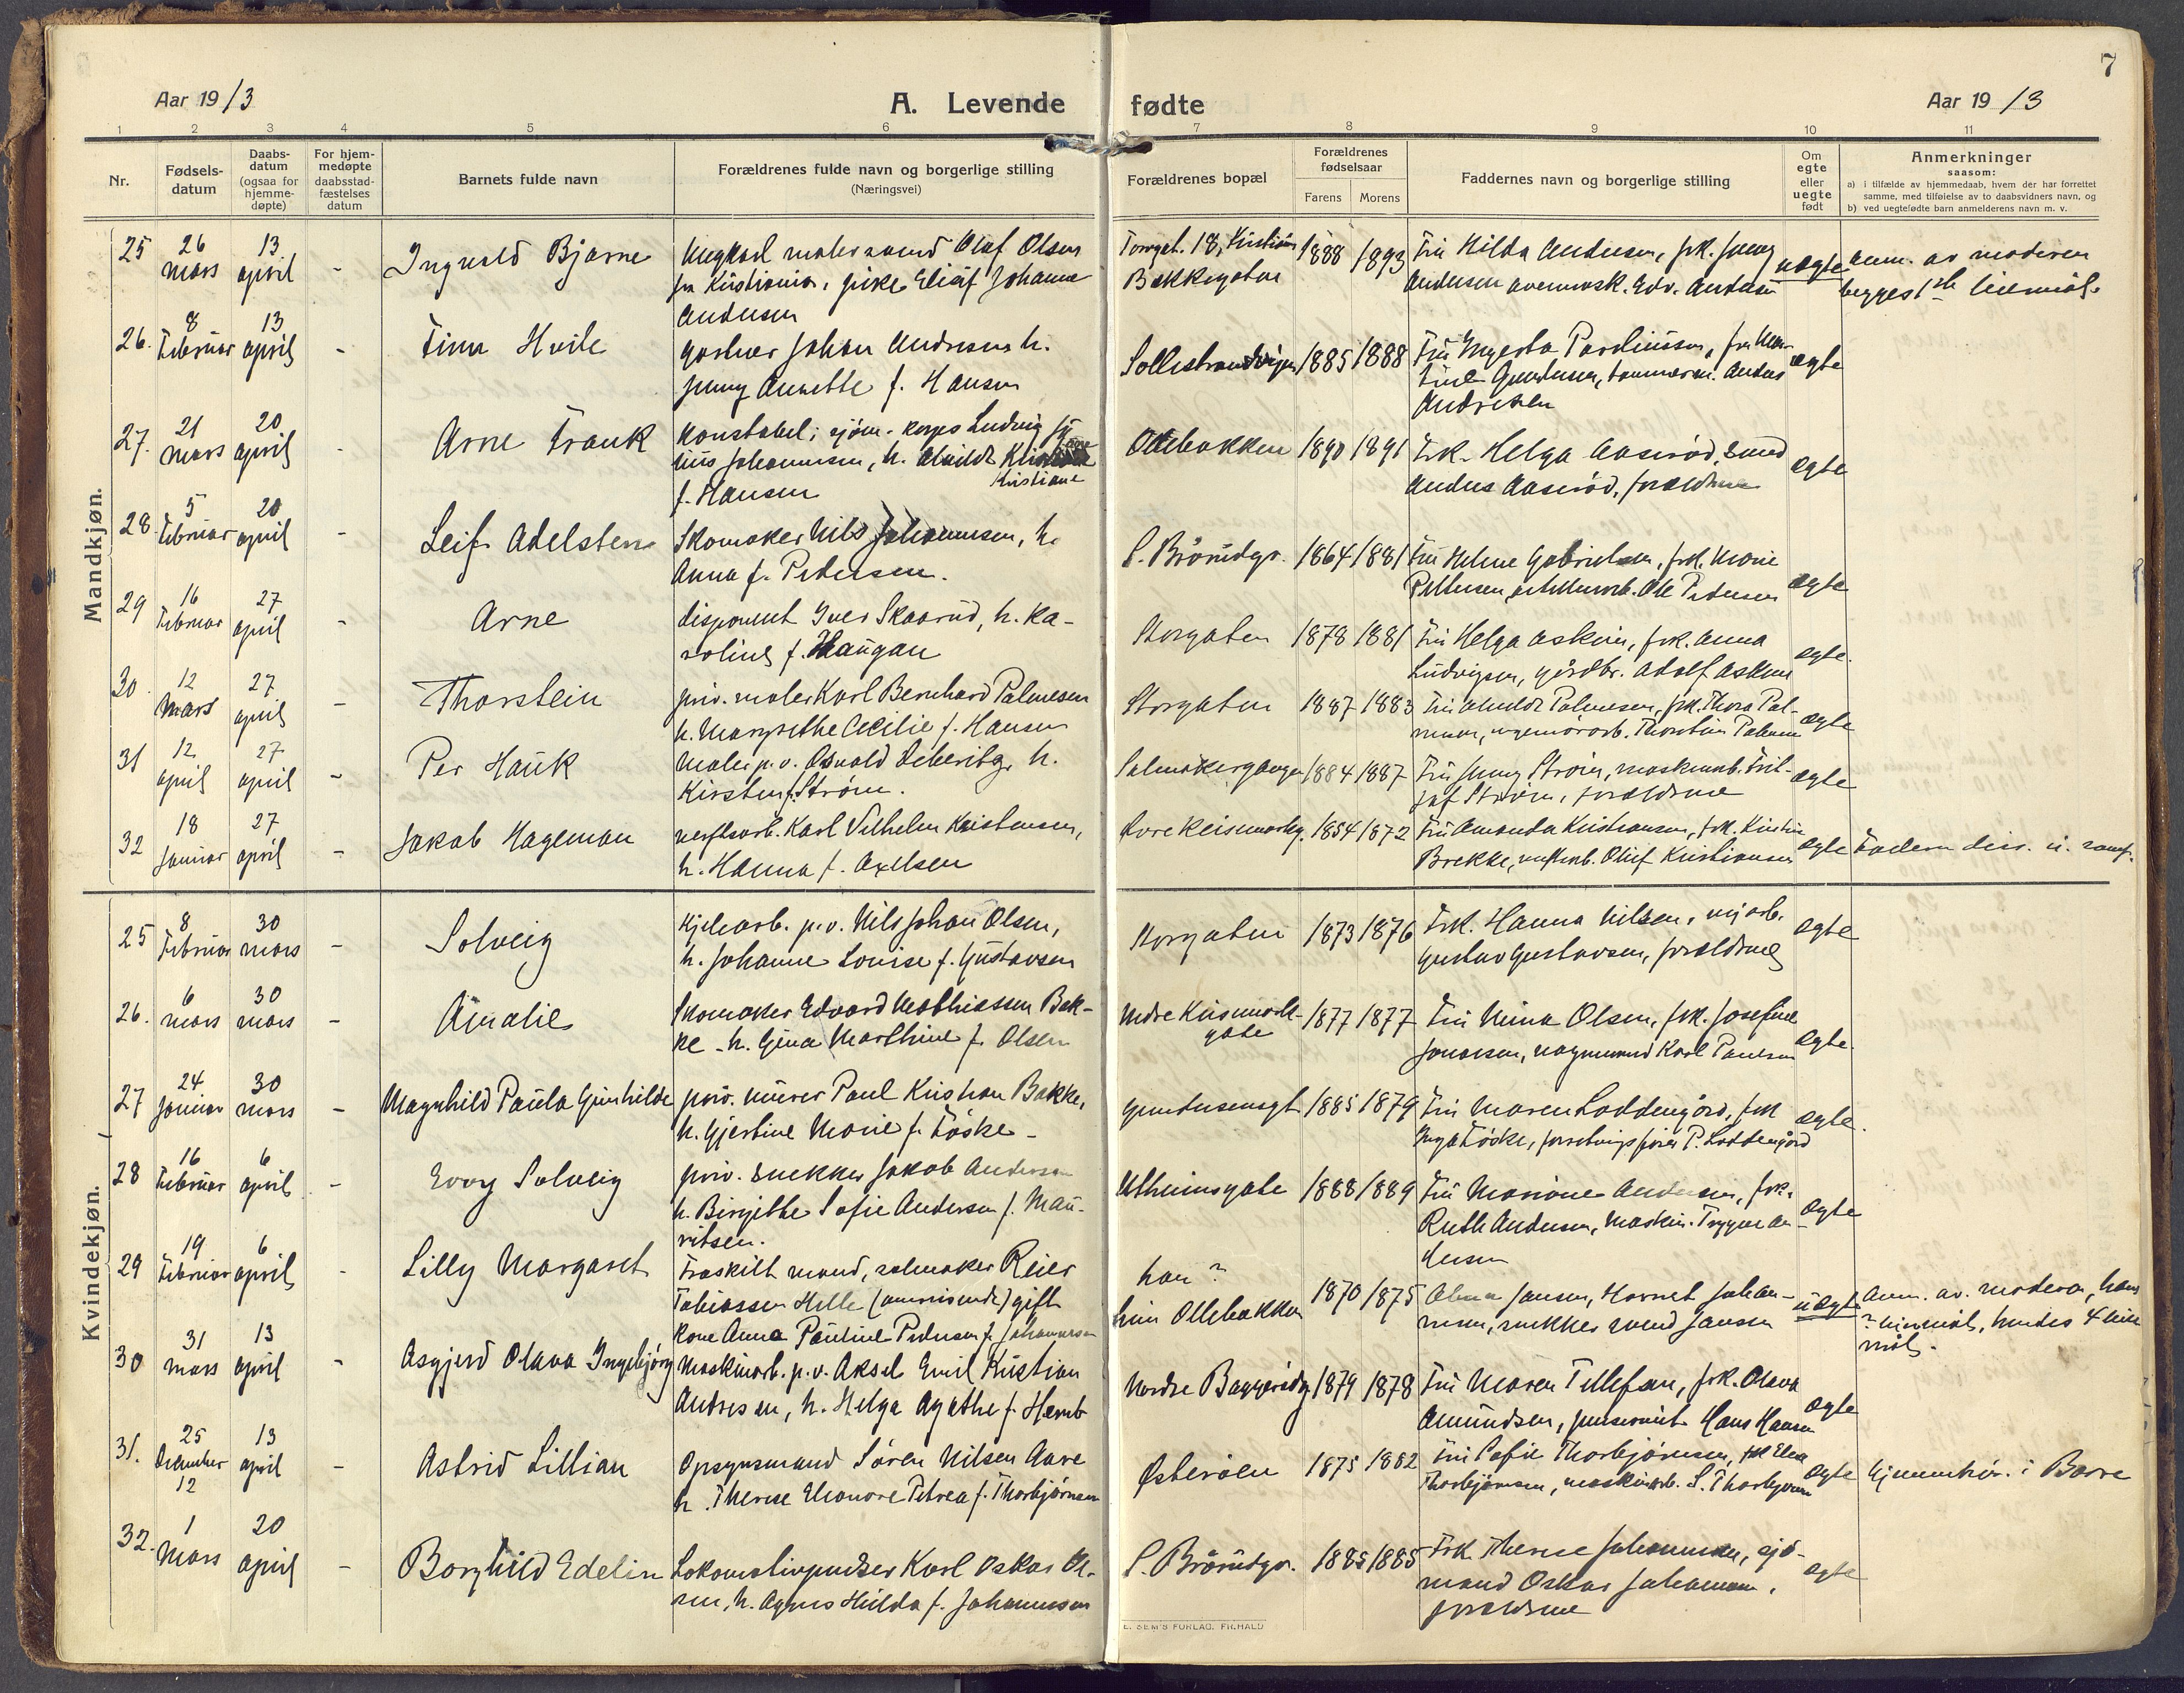 7
Aar 1913
A. Levende
fødte
Aar 1913
1 2 3 4 5 6 7 8 9 10 11
Nr.
Fødsels-
datum
Daabs-
datum
(ogsaa for
hjemme-
døpte)
For hjem-
medøpte
daabsstad-
fæstelses
datum
Barnets fulde navn
Forældrenes fulde navn og borgerlige stilling
(Næringsvei)
Forældrenes bopæl
Forældrenes
fødselsaar
Farens Morens
Faddernes navn og borgerlige stilling
Om
egte
eller
uegte
født
Anmerkninger
saasom:
a) i tilfælde av hjemmedaab, hvem der har forrettet
samme, med tilføielse av to daabsvidners navn, og
b) ved uegtefødte barn anmelderens navn m. v.
Mandkjøn.
25 26 mars 13 april - Ingvald Bjarne
Ungkarl malersvend Olaf Olsen
fra Kristiania, pike Elisif Johanne
Andersen
Torvgt. 18, Kristiania
Bakkegaten
1888 1893
Fru Hilda Andersen, frk. Jenny
Andersen Edv. Andersen
uægte
anm. av moderen
begges 1ste leiermål.
26. 8 Februar 13 april - Finn Hvile
gartner Johan Andresen h.
Jenny Annette f. Hansen
Sollistrandveien 1885 1888
Fru Ingerta Paulinssen, fru
Gundersen, tømmerm. Anders
Andresen
ægte
27. 21 mars 20 april - Arne Frank
Konstabel i sjøm. korps Ludvig
Johannessen, h. Alvilde
Kristiane
f. Hansen
Ollebakken 1890 1891
Frk. Helga Aaserød, smed
Anders Aaserød, forældrene
ægte
28. 5 Februar 20 april - Leif Adelsten
Skomaker Nils Johannesen, h.
Anna f. Pedersen.
S. Brårudgt. 1864 1881
Fru Helene Gabrielsen, frk. Marie
Pettersen, Ole Pedersen
ægte
29 16 Februar 27 april - Arne
disponent Iver Skaarud, h. Ka-
roline f. Haugan
Storgaten 1878 1881
Fru Helga Askim, frk. Anna
Ludvigsen, gårdbr. Adolf Askim
ægte.
30. 12 Mars 27 april - Thorstein
priv. maler Karl Bernhard Palmesen
h. Margrethe Cecilie f. Hansen
Storgaten 1887 1883
Fru Alvilde Palmesen, frk. Thora Pal-
mesen, Thorstein Palmesen
ægte
31 12 april 27 april - Per Hauk
Maler p.v. Osvald h.
Kirsten f. Strøm.
Salmakergangen 1884 1887
Fru Jenny Strøm, maskinarb. Frit-
jof Strøm, forældrene
ægte
32 18 Januar 27 april - Jakob Hageman
verftsarb. Karl Vilhelm Kristensen,
h. Hanna f. Axelsen
Øvre Keisemarkg. 1854 1872
Fru Amanda Kristiansen, frk. Kristin
Brekke, verftsarb. Oluf Kristiansen
ægte
Faderen diss. u. samf.
Kvindekjøn.
25 8 Februar 30 mars - Solveig
Kjelearb. p.v. Nils Johan Olsen,
h. Johanne Louise f. Gustavsen
Storgaten 1873 1876
Frk. Hanna Nilsen, arb.
Gustav Gustavsen, forældrene
ægte
26. 6 mars 30 mars - Amalie
Skomaker Edvard Mathiassen Bak-
ke - h. Gina Marthine f. Olsen
Nedre Keisemark-
gate
1877 1877
Fru Mina Olsen, frk. Josefine
Jonassen, vognmand Karl Paulsen
ægte.
27 24 Januar 30 mars - Magnhild Paula Gunhilde
priv. murer Paul Kristian Bakke,
h. Gjertine Marie f. Føske -
Gundersensgt 1885 1879
Fru Maren Loddengård, frk
Inga Føske, forretningsfører P. Loddengård
ægte.
28 16 Februar 6 april - Evoy Solveig
priv. snekker Jakob Andersen
h. Birgitthe Sofie Andersen f. Mau-
ritsen.
Utheimsgate 1888 1889
Fru Mariane Andersen, frk.
Ruth Andersen, Maskin. Trygve An-
dersen
ægte
29 19 Februar 6 april - Lilly Margaret
Fraskilt mand, salmaker Reier
Tobiassen Helle (amerikanske) gift
Kone Anna Pauline Pedersen f. Johannessen
han?
hun Ollebakken
1870 1875
Alma Jansen, Harriet Johan-
nesen, snekker svend Jansen
uægte
Anm. av. moderen, hans
? leiermål, hendes 4 leier
mål.
30 31 mars 13 april - Asgjerd Olava Ingebjørg
Maskinarb. p.v. Aksel Emil Kristian
Andresen, h. Helga Agathe f. Hernb
Nordre Baggerødg. 1879 1878
Fru Maren Tellefsen, frk. Olava
Amundsen, pensionist Hans Hansen
ægte
31. 25 December 12 13 april - Astrid Lillian
Opsynsmand Søren Nilsen Aave
h. Therese Eleonore Petrea f. Thorbjørnsen
Østerøen 1875 1882
Fru Sofie Thorbjørnsen, frk Elen
Thorbjørnsen, maskinarb. S. Thorbjørnsen
ægte
hjemmehør. i Borre
32. 1 Mars 20 april - Borghild Edelin
Lokomotivpudser Karl Oskar Ol-
sen, h. Agnes Hilda f. Johannessen
S. Brårudgt. 1885 1885
Frk. Therese Johannesen, sjø-
mand Oskar Johannesen,
forældrene
ægte
E. SEM'S FORLAG. FR.HALD